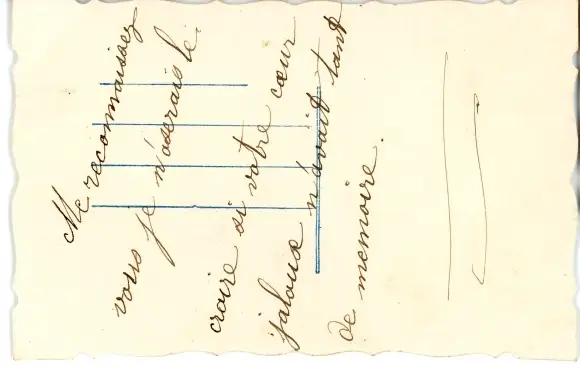 Me reconnaissez
vous je n'oserais le
croire si votre cœur
jaloux n'avait tant
de memoire.